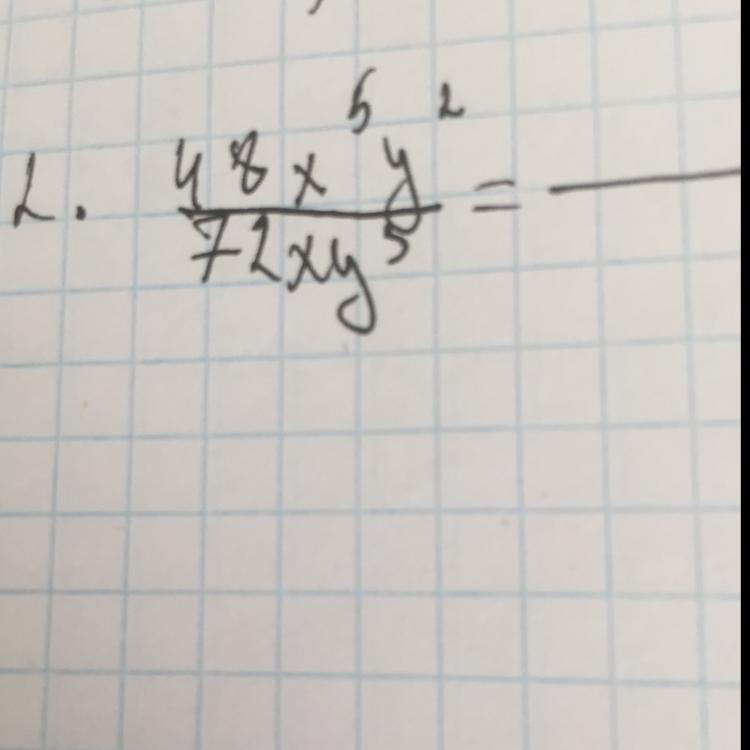 2. 48x⁵y² / 72xy⁵ =